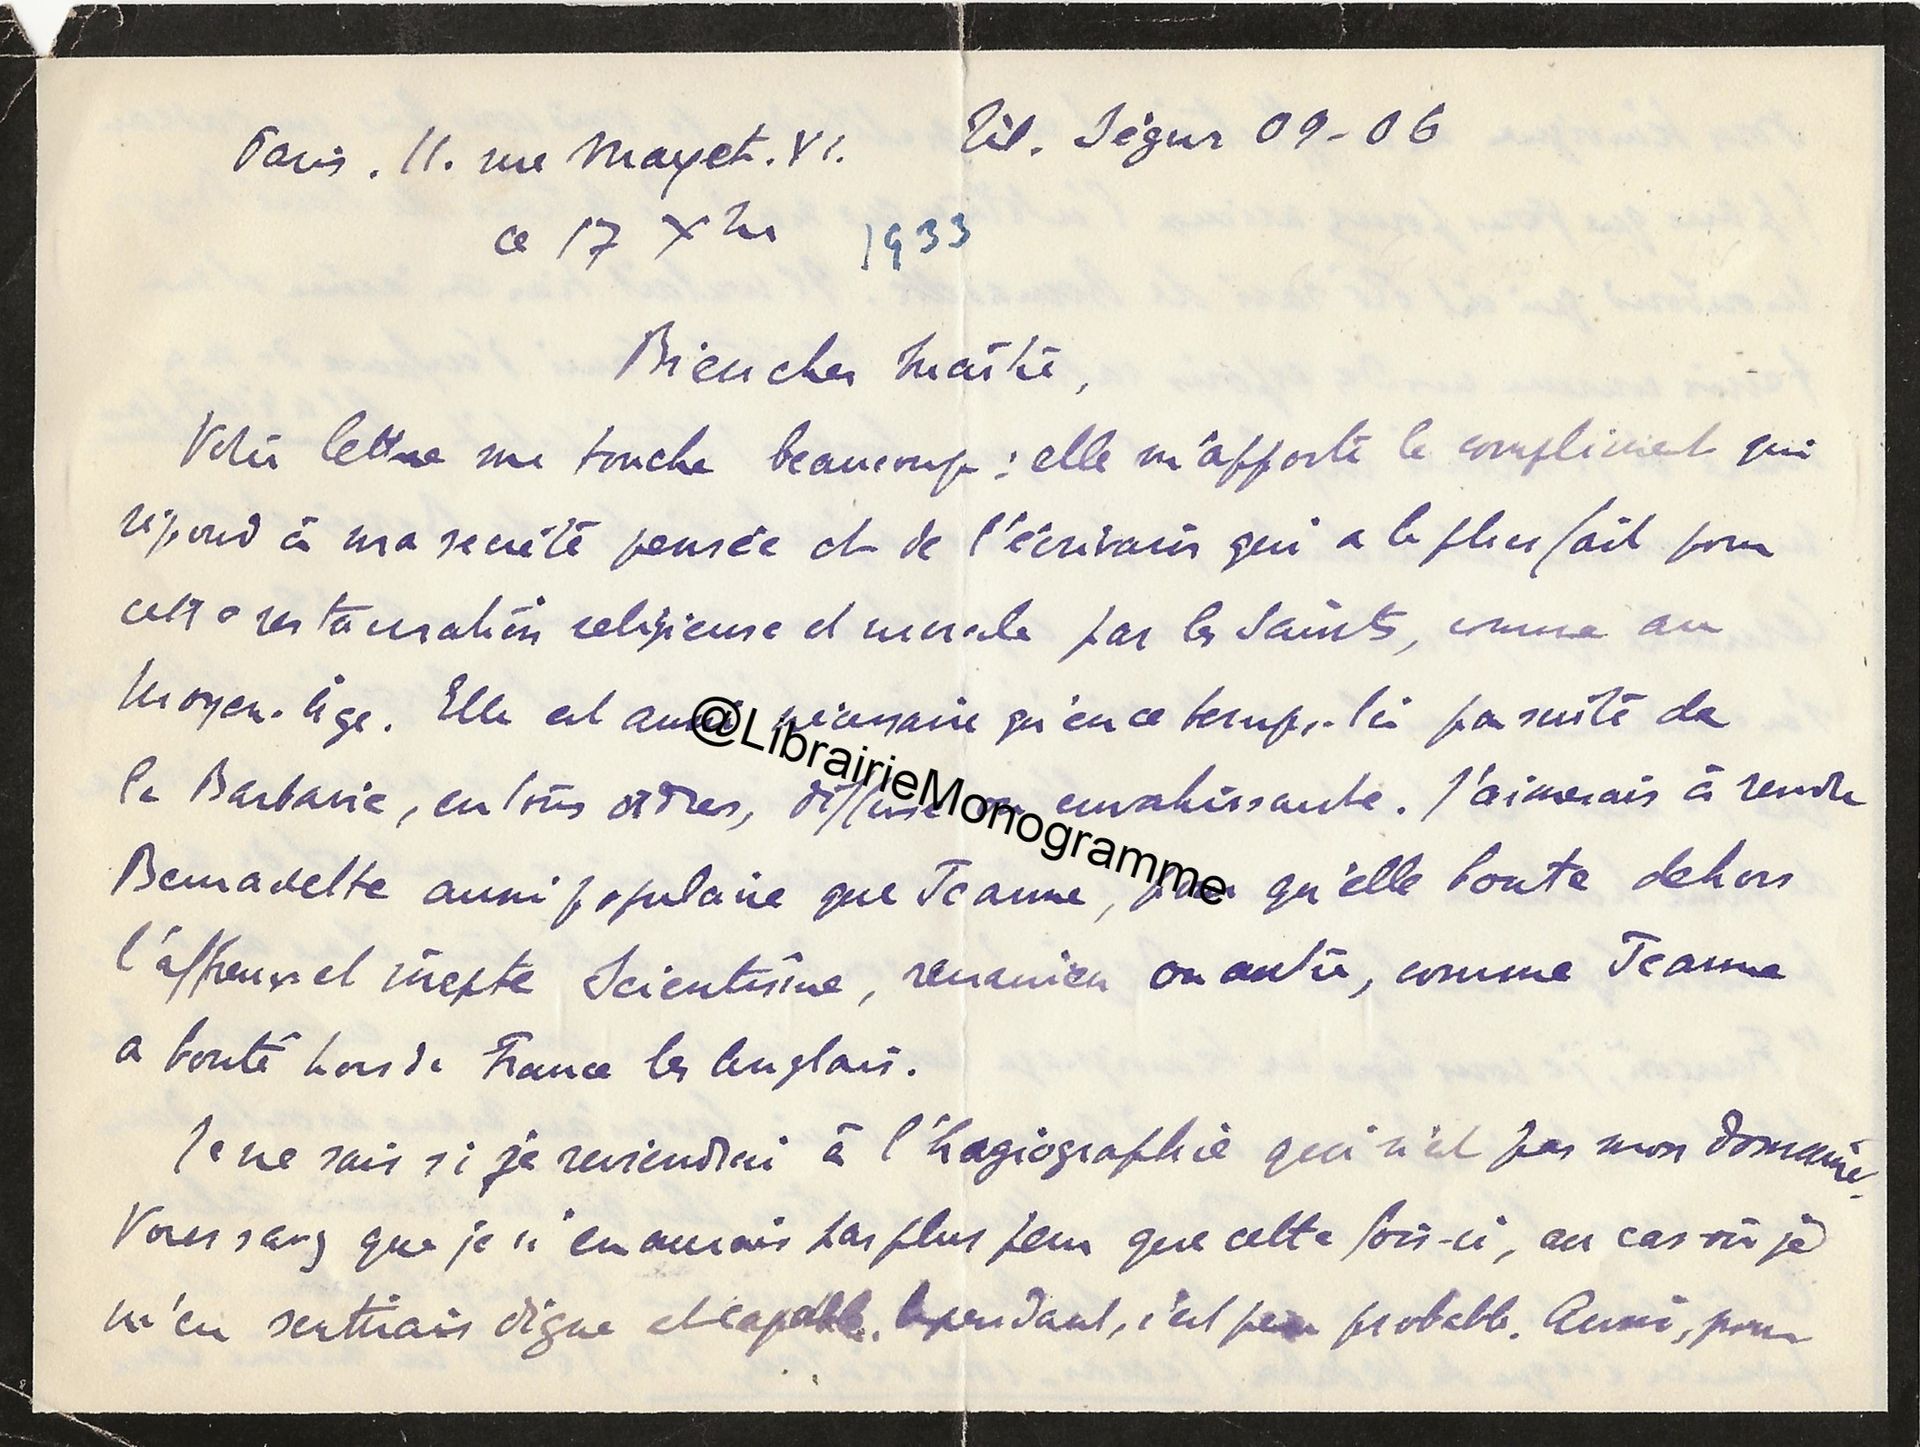 Paris. 11. rue Mayet. VI. Tél. Ségur 09-06
ce 17 Xbre 1933
Bien cher Maître,
Votre lettre me touche beaucoup : elle m'apporte le compliment qui
répond à ma secrète pensée et de l'écrivain qui a le plus fait pour
cette restauration religieuse et morale par les Saints, comme au
Moyen-âge. Elle est aussi nécessaire qu'en ce temps-là par suite de
la Barbarie, en tous ordres, diffuse ou envahissante. J'aimerais à rendre
Bernadette aussi populaire que Jeanne, pour qu'elle boute dehors
l'affreux et inepte Scientisme, renanien ou autre, comme Jeanne
a bouté hors de France les Anglais.
Je ne sais si je reviendrai à l'hagiographie qui n'est pas mon domaine.
Vous savez que je n'en aurais pas plus peur que cette fois-ci, au cas où je
m'en sentirais digne et capable. Cependant, c'est peu probable. Aussi, pour
@LibrairieMonogramme